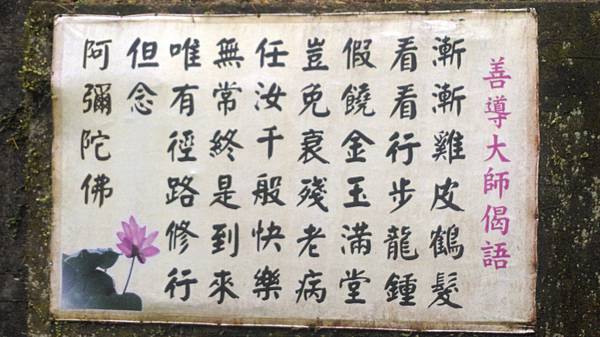 善導大師偈語
漸漸雞皮鶴髮
看看行步龍鍾
假饒金玉滿堂
豈免衰殘老病
任汝千般快樂
無常終是到來
唯有徑路修行
但念
阿彌陀佛